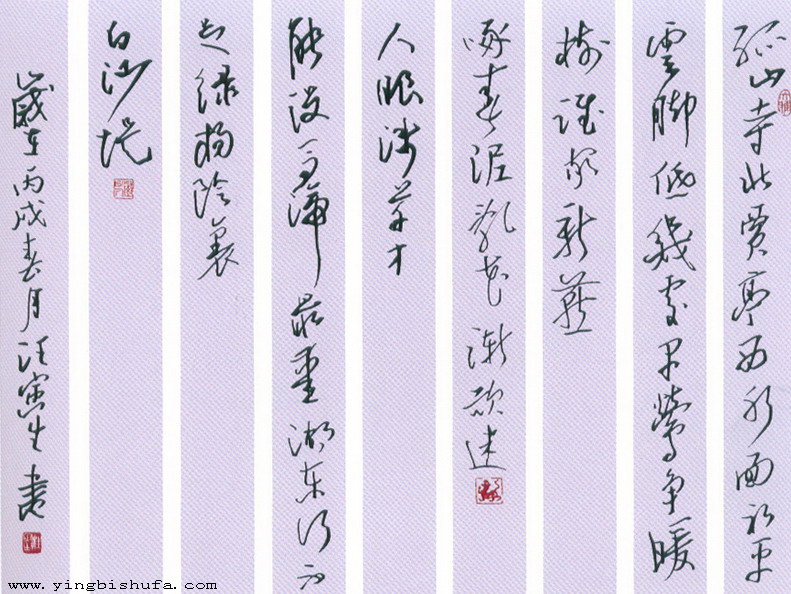 孤山寺北賈亭西水面初平
雲脚低幾處早鶯争暖
樹誰家新燕
啄春泥亂花漸欲迷
人眼淺草才
能没马蹄最愛湖東行不
足绿杨陰裏
白沙堤
歲在丙戌春月汪寅生書
www.yingbishufa.com